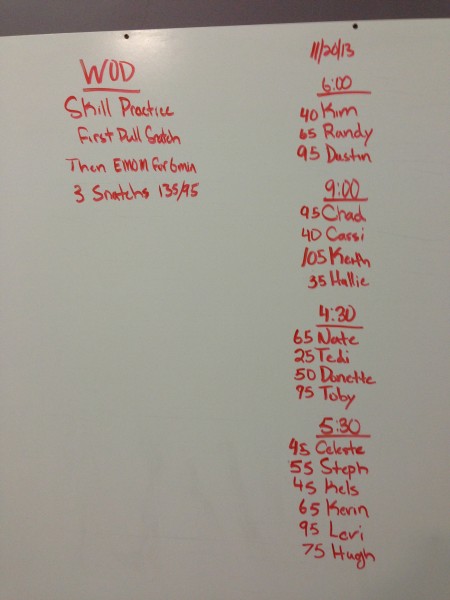 WOD
Skill Practice
First Pull Snatch
Then EMOM For 6min
3 Snatchs 135/95
11/20/13
6:00
40 Kim
65 Randy
95 Dustin
9:00
95 Chad
40 Cassi
105 Keith
35 Hallie
4:30
65 Nate
25 Tedi
50 Donette
95 Toby
5:30
45 Celeste
55 Steph
45 Kels
65 Kevin
95 Levi
75 Hugh